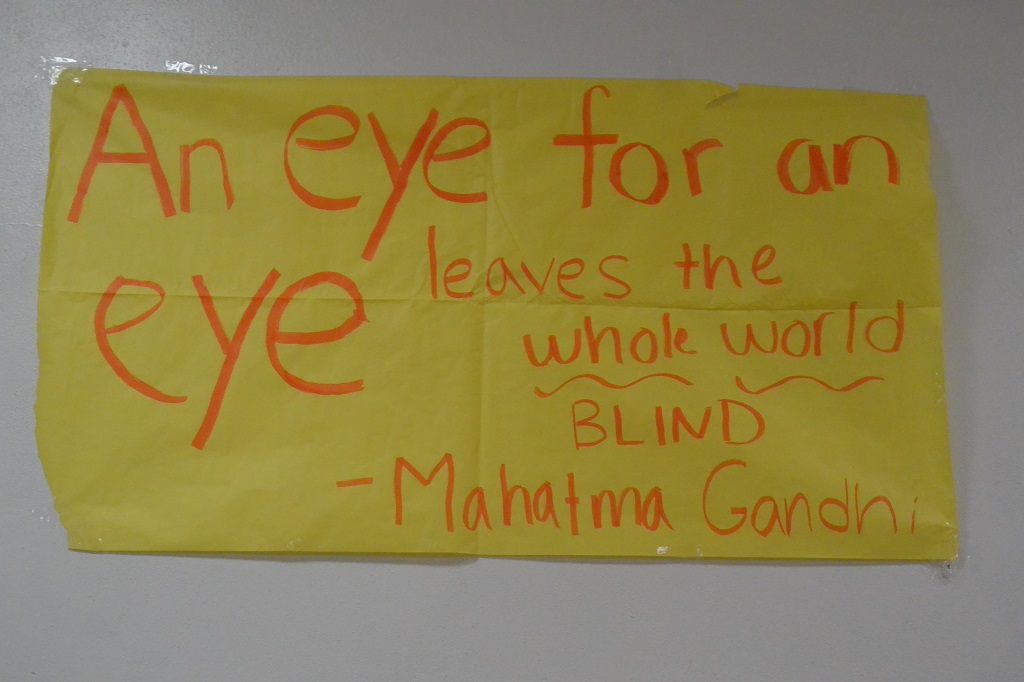 An eye for an
eye leaves the
whole world
BLIND
- Mahatma Gandhi